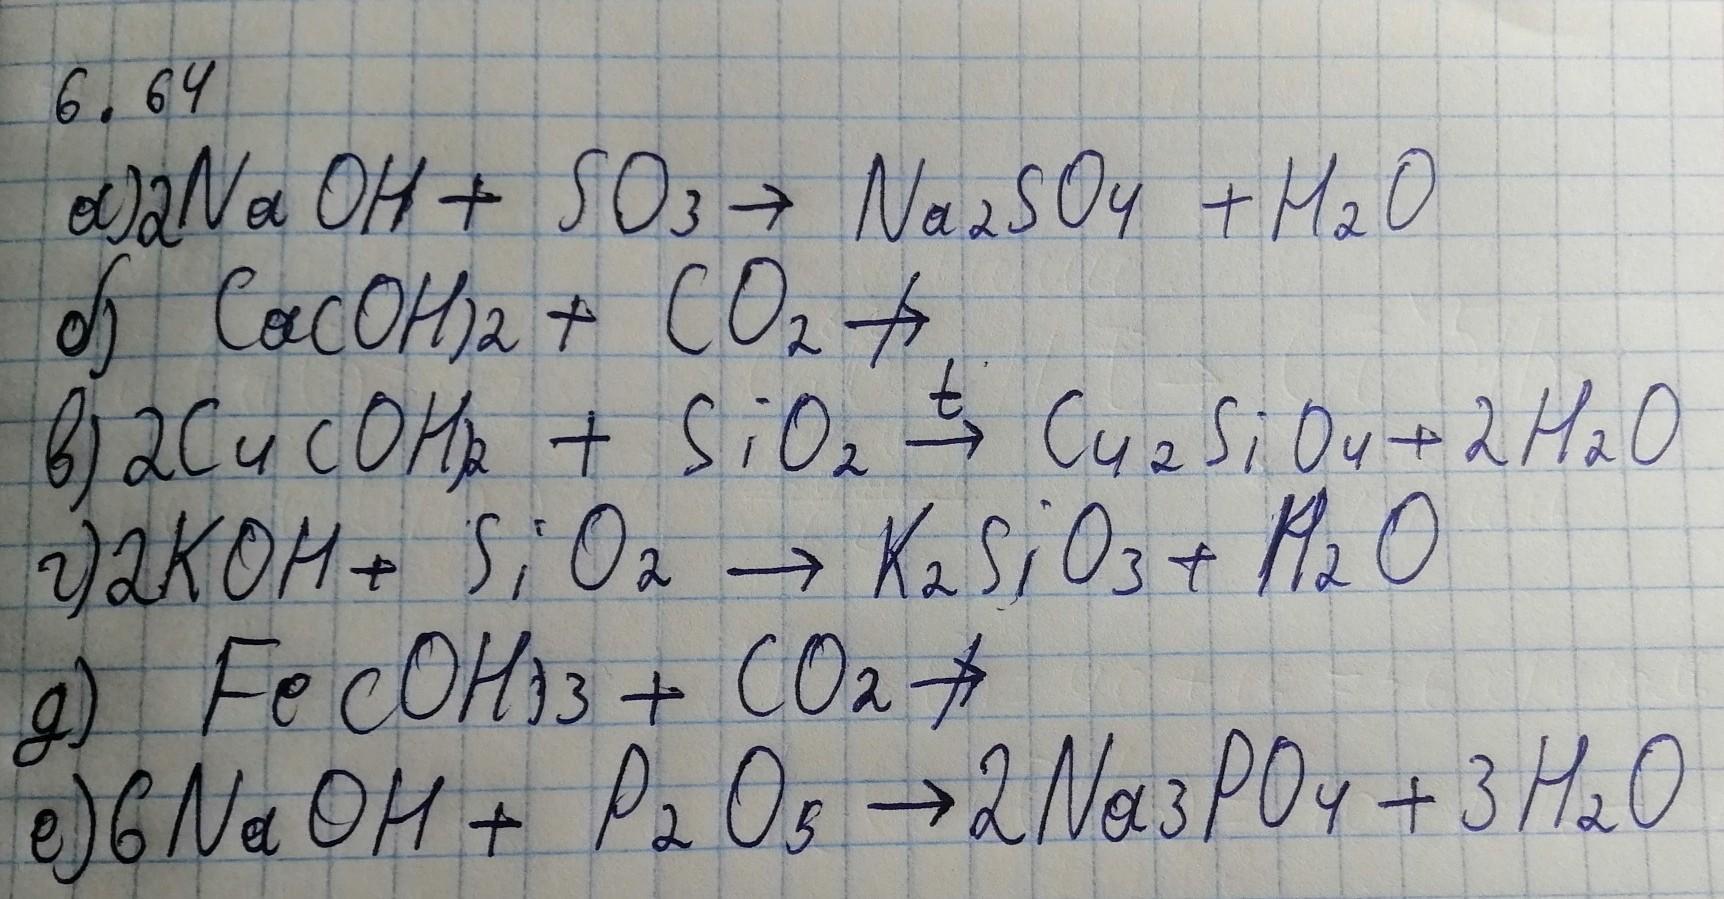 6.64
а) 2NaOH + SO3 → Na2SO4 + H2O
б) Ca(OH)2 + CO2 ↛
в) 2Cu(OH)2 + SiO2 t→ Cu2SiO4 + 2H2O
г) 2KOH + SiO2 → K2SiO3 + H2O
д) Fe(OH)3 + CO2 ↛
е) 6NaOH + P2O5 → 2Na3PO4 + 3H2O